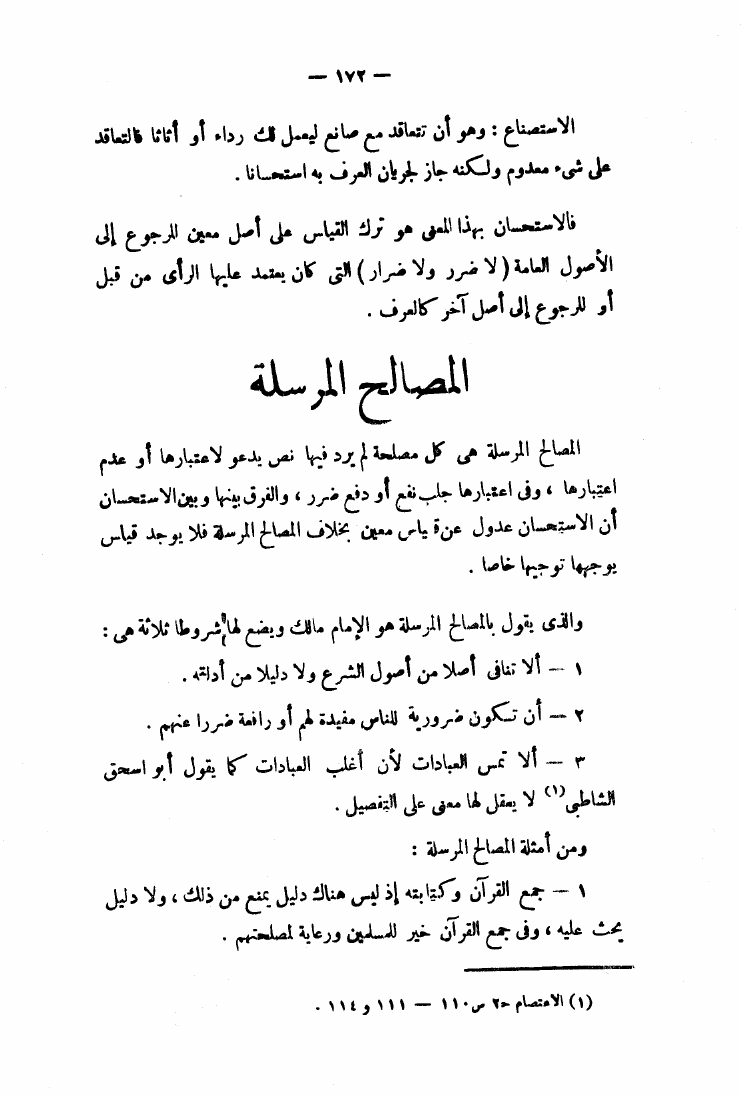 — ١٧٢ —
الاستصناع : وهو أن تتعاقد مع صانع ليعمل لك رداء أو أثاثا فالتعاقد
على شىء معدوم ولكنه جاز لجريان العرف به استحسانا .
فالاستحسان بهذا المعنى هو ترك القياس على أصل معين للرجوع إلى
الأصول العامة ( لا ضرر ولا ضرار ) التى كان يعتمد عليها الرأى من قبل
أو للرجوع إلى أصل آخر كالعرف .
المصالح المرسلة
المصالح المرسلة هى كل مصلحة لم يرد فيها نص يدعو لاعتبارها أو عدم
اعتبارها ، وفى اعتبارها جلب نفع أو دفع ضرر ، والفرق بينها وبين الاستحسان
أن الاستحسان عدول عن قياس معين بخلاف المصالح المرسلة فلا يوجد قياس
يوجهها توجيها خاصا .
والذى يقول بالمصالح المرسلة هو الإمام مالك ويضع لها شروطا ثلاثة هى :
١ — ألا تنافى أصلا من أصول الشرع ولا دليلا من أدلته .
٢ — أن تكون ضرورية للناس مفيدة لهم أو رافعة ضررا عنهم .
٣ — ألا تمس العبادات لأن أغلب العبادات كما يقول أبو اسحق
الشاطبى (١) لا يعقل لها معنى على التفصيل .
ومن أمثلة المصالح المرسلة :
١ — جمع القرآن وكتابته إذ ليس هناك دليل يمنع من ذلك ، ولا دليل
يحث عليه ، وفى جمع القرآن خير للمسلمين ورعاية لمصلحتهم .
(١) الاعتصام ح٢ ص ١١٠ — ١١١ و ١١٤ .